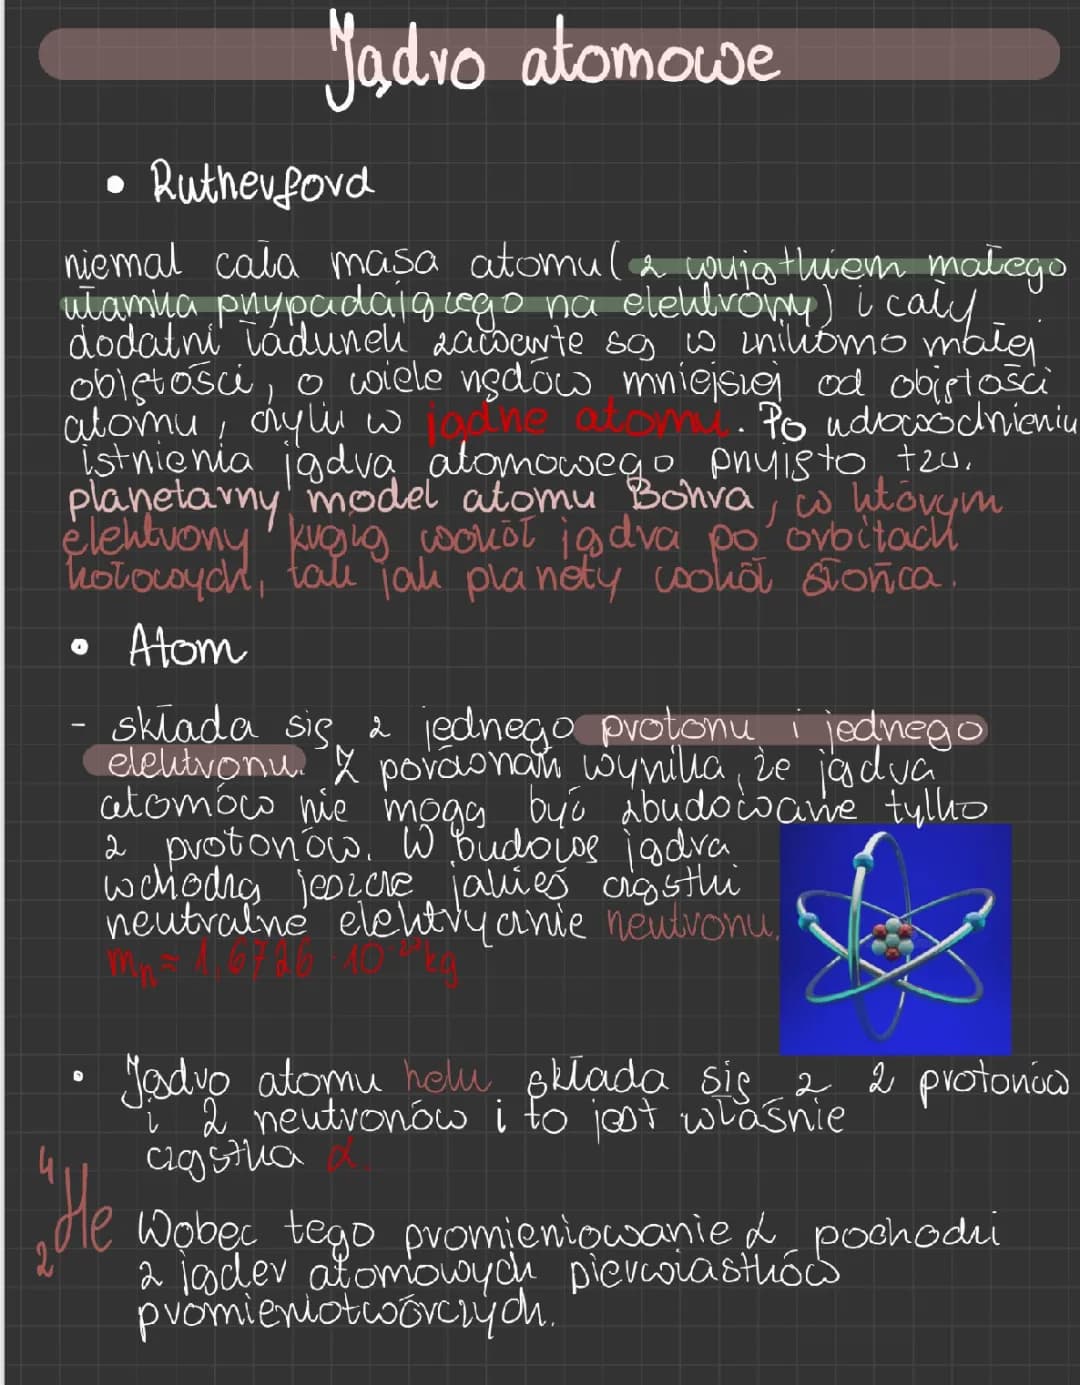 Jądro atomowe
• Rutherford
niemal cała masa atomu (z wyjątkiem małego
ułamka przypadającego na elektrony) i cały
dodatni ładunek zawarte są w znikomo małej
objętości, o wiele rzędów mniejszej od objętości
atomu, czyli w jądrze atomu. Po udowodnieniu
istnienia jądra atomowego przyjęto tzw.
planetarny model atomu Bohra, w którym
elektrony krążą wokół jądra po orbitach
kołowych, tak jak planety wokół Słońca.
• Atom
- składa się z jednego protonu i jednego
elektronu. Z porównań wynika, że jądra
atomów nie mogą być zbudowane tylko
z protonów. W budowę jądra
wchodzą jeszcze jakieś cząstki
neutralne elektrycznie neutronu.
mn = 1,6726 · 10⁻²⁷ kg
• Jądro atomu helu składa się z 2 protonów
i 2 neutronów i to jest właśnie
cząstka α.
⁴₂He
Wobec tego promieniowanie α pochodzi
z jąder atomowych pierwiastków
promieniotwórczych.